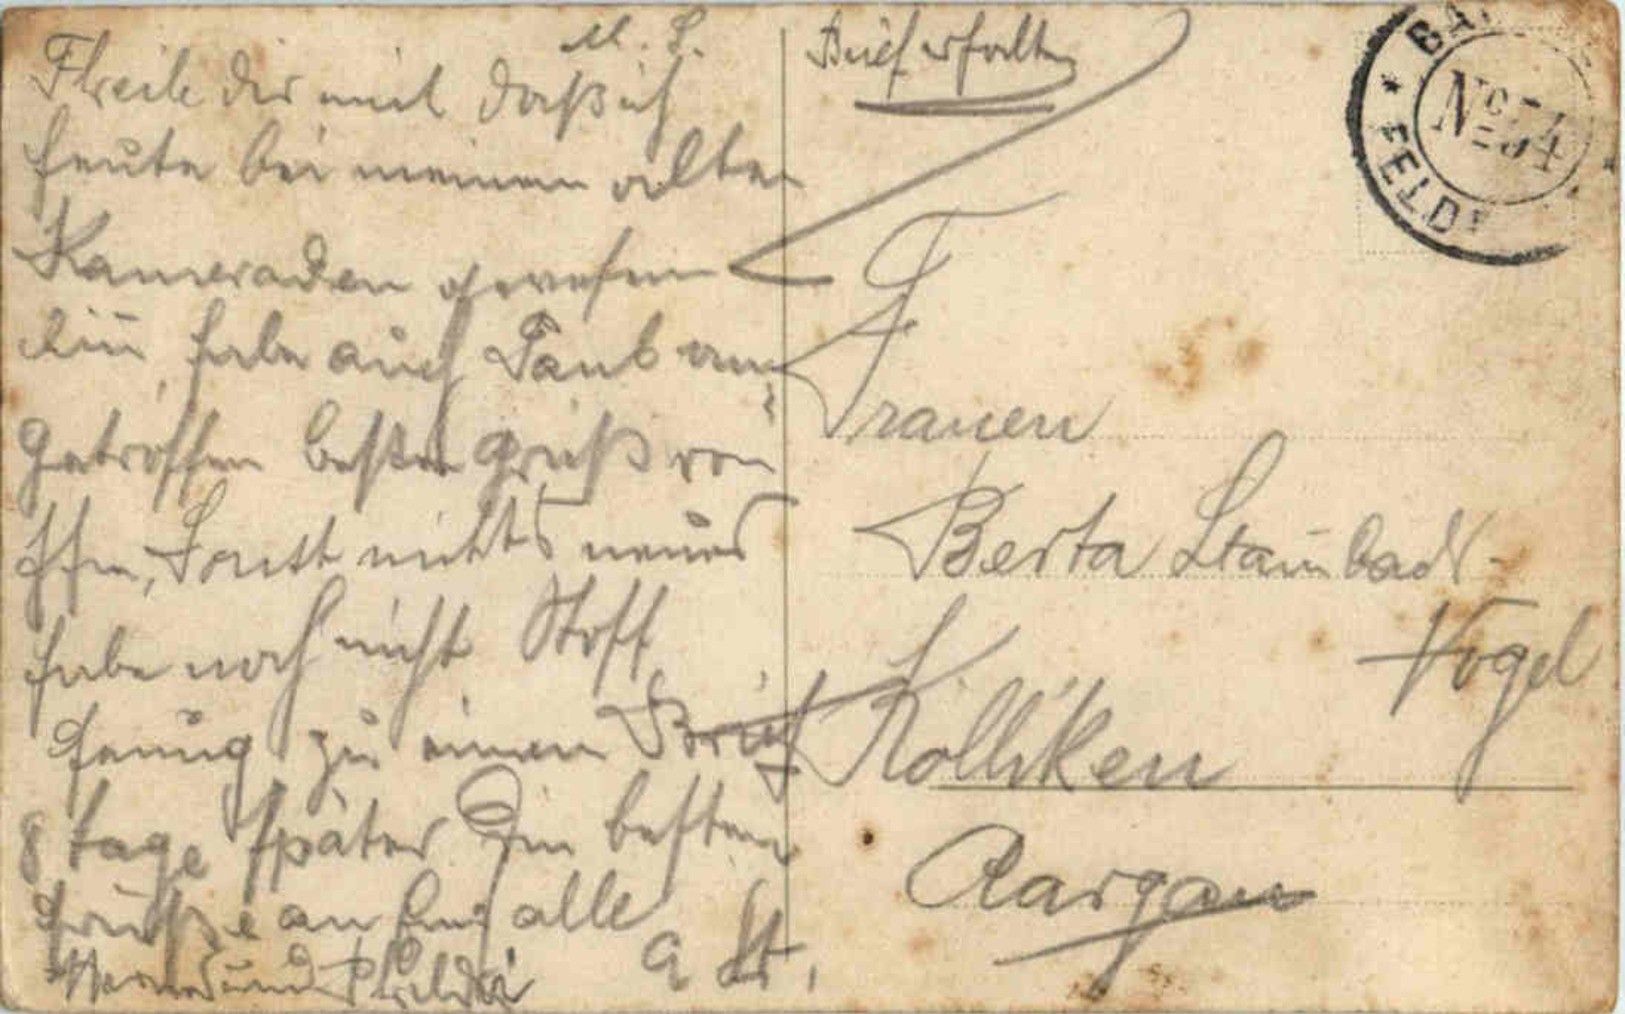 M. L.
Theile dir mit daß ich
heute bei meinen alten
Kameraden gewesen
bin, habe auch Paul an-
getroffen beste Grüß von
Ihm, Sonst nichts neues
habe noch nicht Stoff
genug zu einem Brief
8 tage später Die besten
Grüße an Euch alle
und
A St.
Brief erhalten
Frauen
Berta Staubach-
Vogel
Kölliken
Aargau
BAT
No 54
FELDP